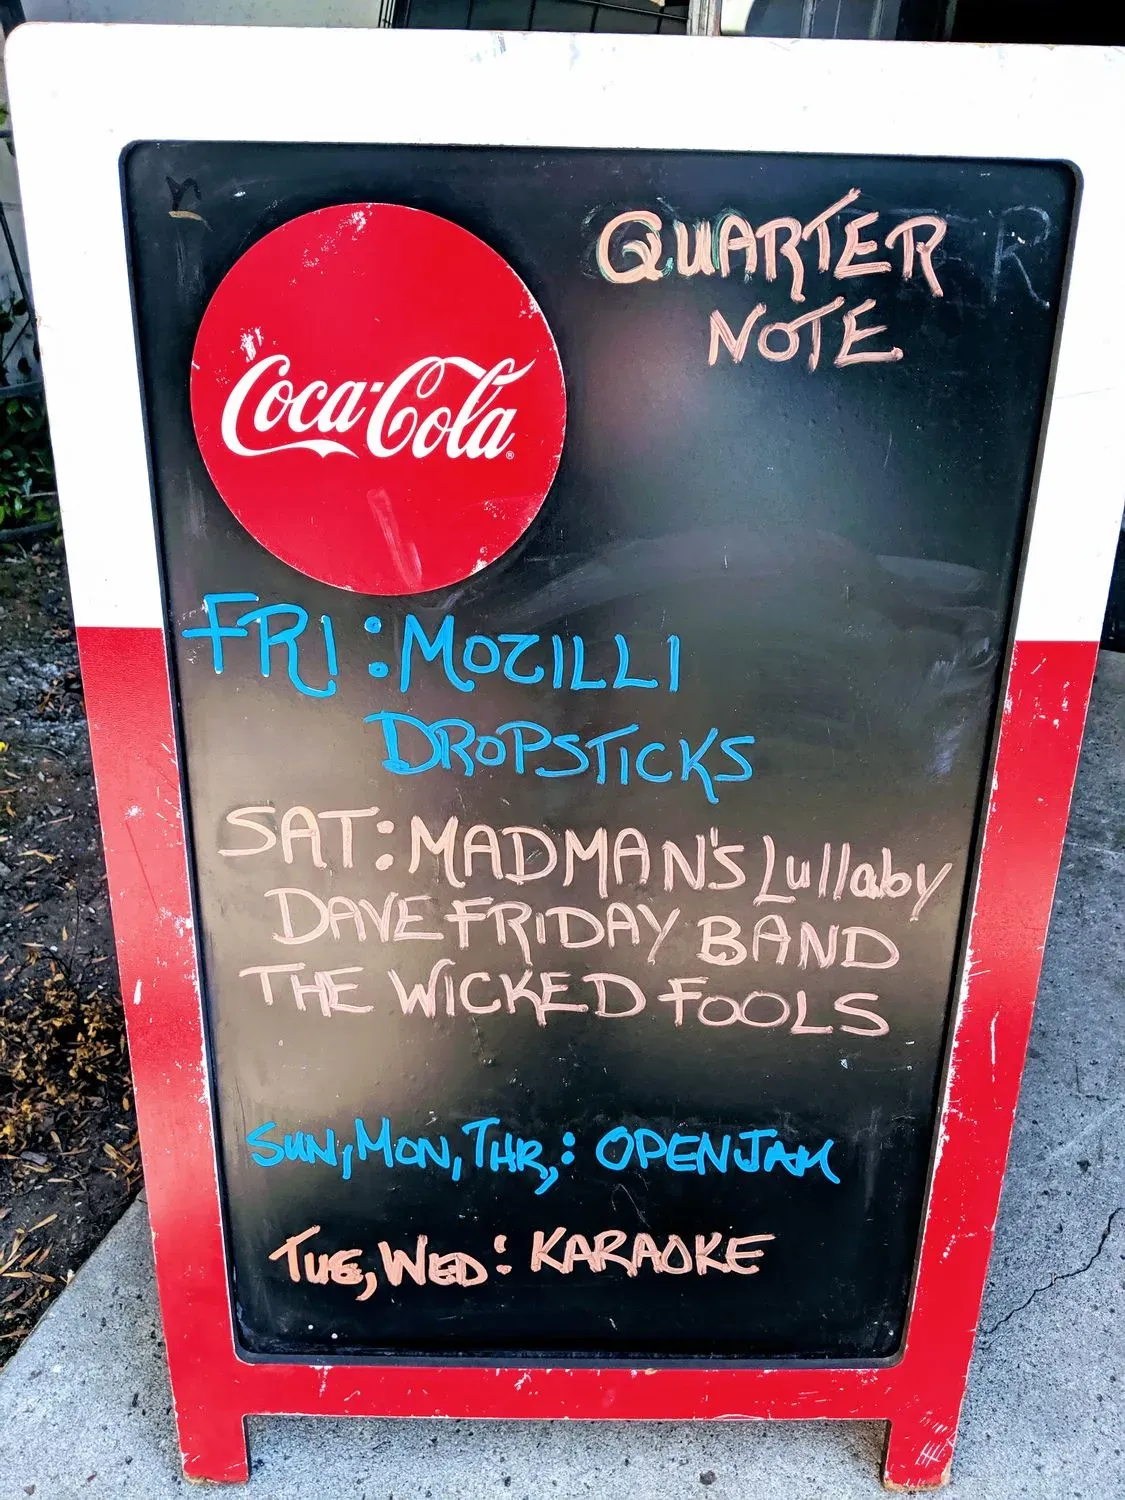 QUARTER
NOTE
Coca-Cola®
FRI: MOZILLI
DROPSTICKS
SAT: MADMAN'S Lullaby
DAVE FRIDAY BAND
THE WICKED FOOLS
SUN, MON, THR,: OPEN JAM
TUE, WED: KARAOKE